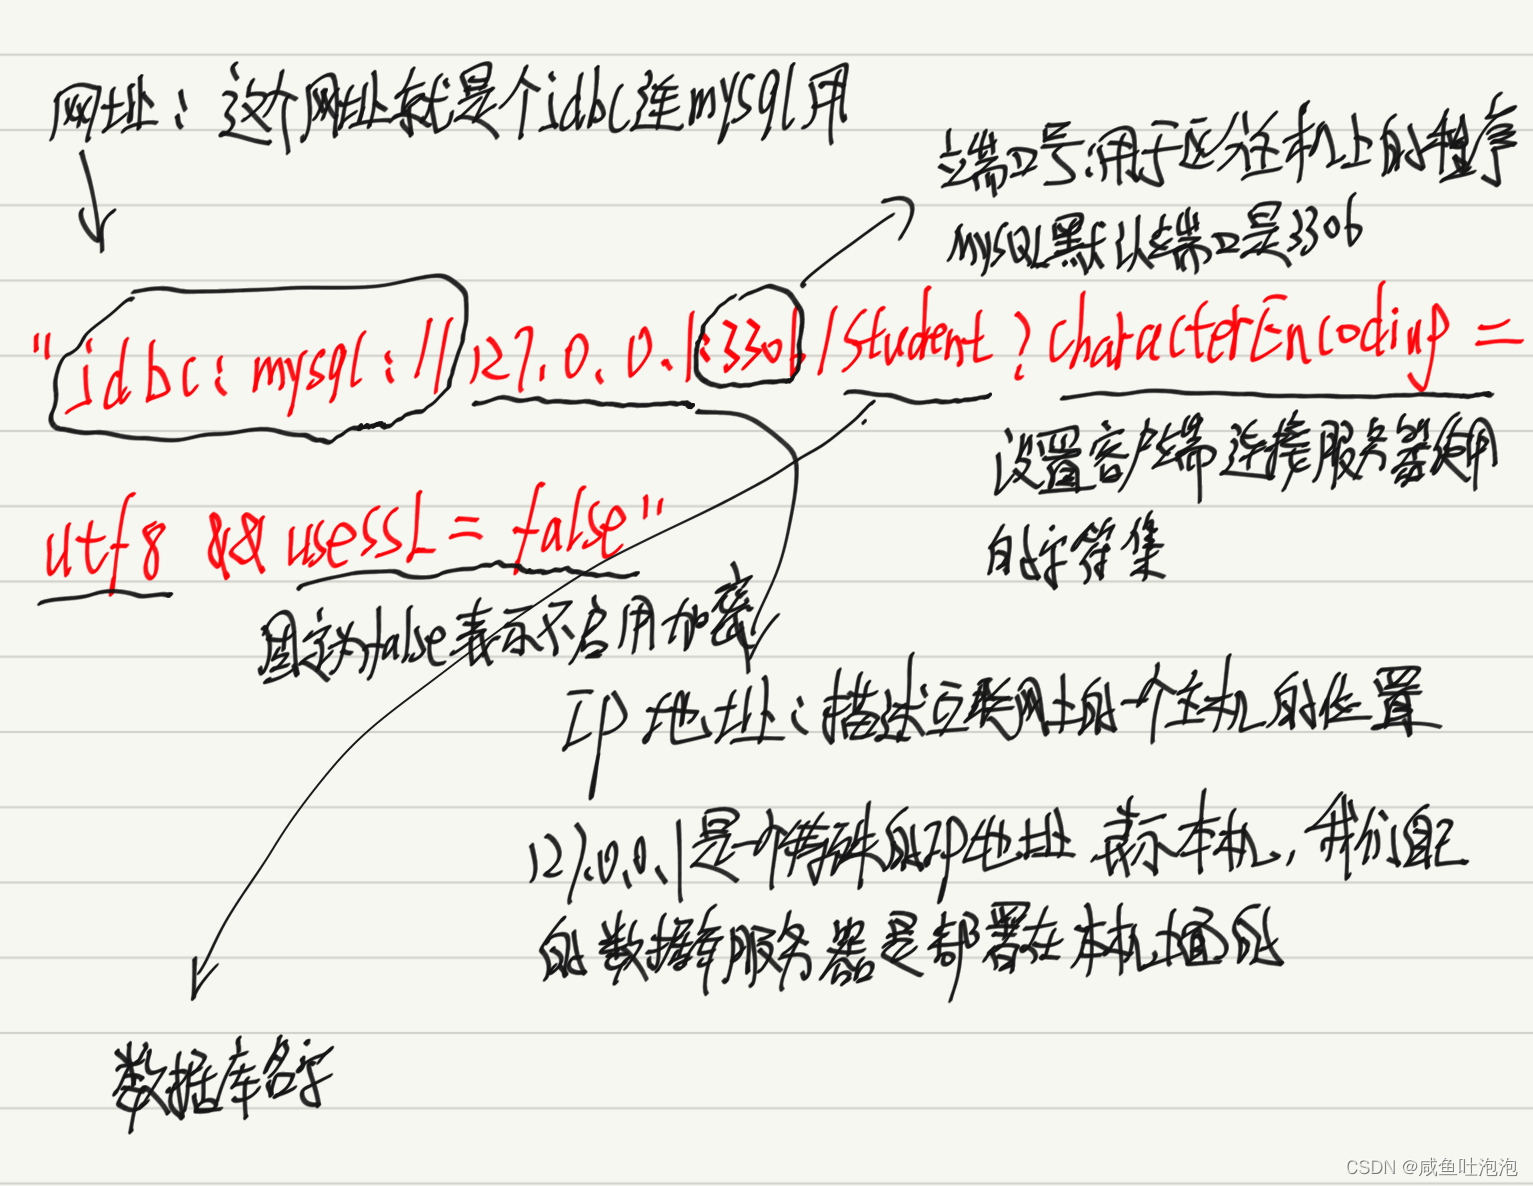 网址：这个网址就是个jdbc连mysql用
端口号：用于区分主机上的程序
MySQL默认端口是3306
"jdbc:mysql://127.0.0.1:3306/student?characterEncoding=
设置客户端连接服务器使用
的字符集
utf8 &&usessL=false"
固定为false表示不启用加密
IP地址：描述互联网上的一个主机的位置
127.0.0.1是一个特殊的IP地址 表示本机，我们自己
的数据库服务器是部署在本机上面的
数据库名字
CSDN @咸鱼吐泡泡